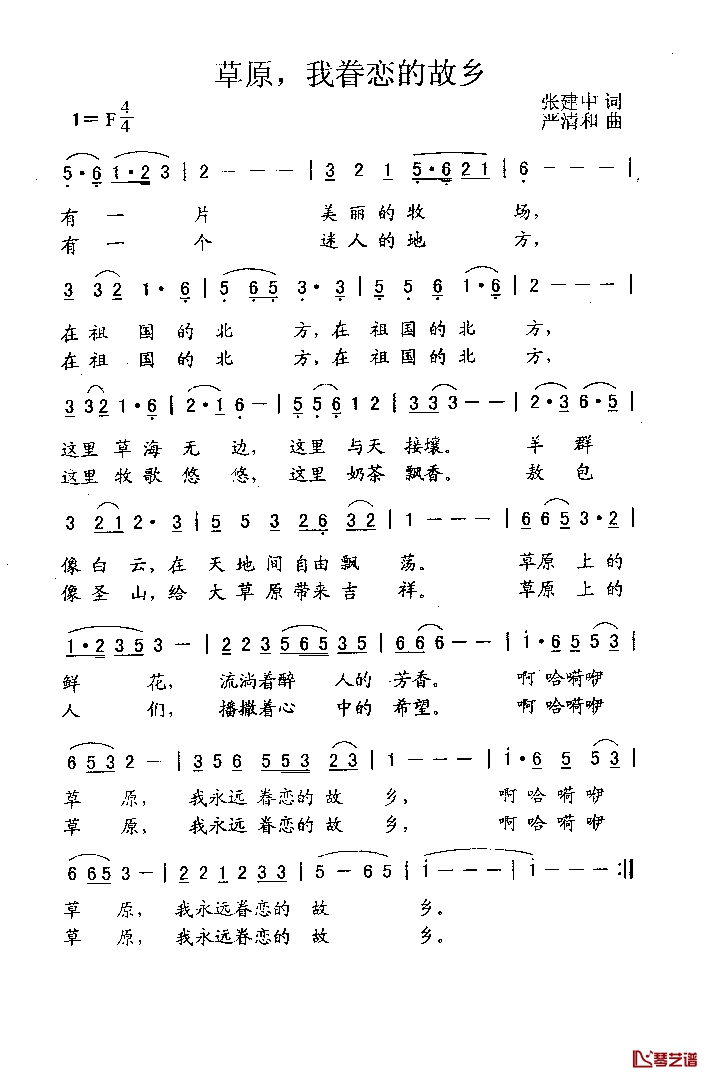 草原，我眷恋的故乡
1=F 4/4
张建中 词
严清和 曲
5·6 1·2 3 | 2 - - - | 3 2 1 5·6 2 1 | 6 - - - |
有一片 美丽的牧 场，
有一个 迷人的地 方，
3 3 2 1·6 | 5 6 5 3·3 | 5 5 6 1·6 | 2 - - - |
在祖国的北 方，在祖国的北 方，
在祖国的北 方，在祖国的北 方，
3 3 2 1·6 | 2·1 6 - | 5 5 6 1 2 | 3 3 3 - - | 2·3 6·5 |
这里草海无边，这里与天接壤。羊群
这里牧歌悠悠，这里奶茶飘香。敖包
3 2 1 2·3 | 5 5 3 2 6 3 2 | 1 - - - | 6 6 5 3·2 |
像白云，在天地间自由飘 荡。草原上的
像圣山，给大草原带来吉 祥。草原上的
1·2 3 5 3 - | 2 2 3 5 6 5 3 5 | 6 6 6 - - | 1·6 5 5 3 |
鲜 花，流淌着醉人的芳香。啊哈嗬咿
人 们，播撒着心中的希望。啊哈嗬咿
6 5 3 2 - | 3 5 6 5 5 3 2 3 | 1 - - - | 1·6 5 5 3 |
草原，我永远眷恋的故 乡，啊哈嗬咿
草原，我永远眷恋的故 乡，啊哈嗬咿
6 6 5 3 - | 2 2 1 2 3 3 | 5 - 6 5 | 1 - - - | 1 - - - :||
草原，我永远眷恋的故 乡。
草原，我永远眷恋的故 乡。
琴艺谱